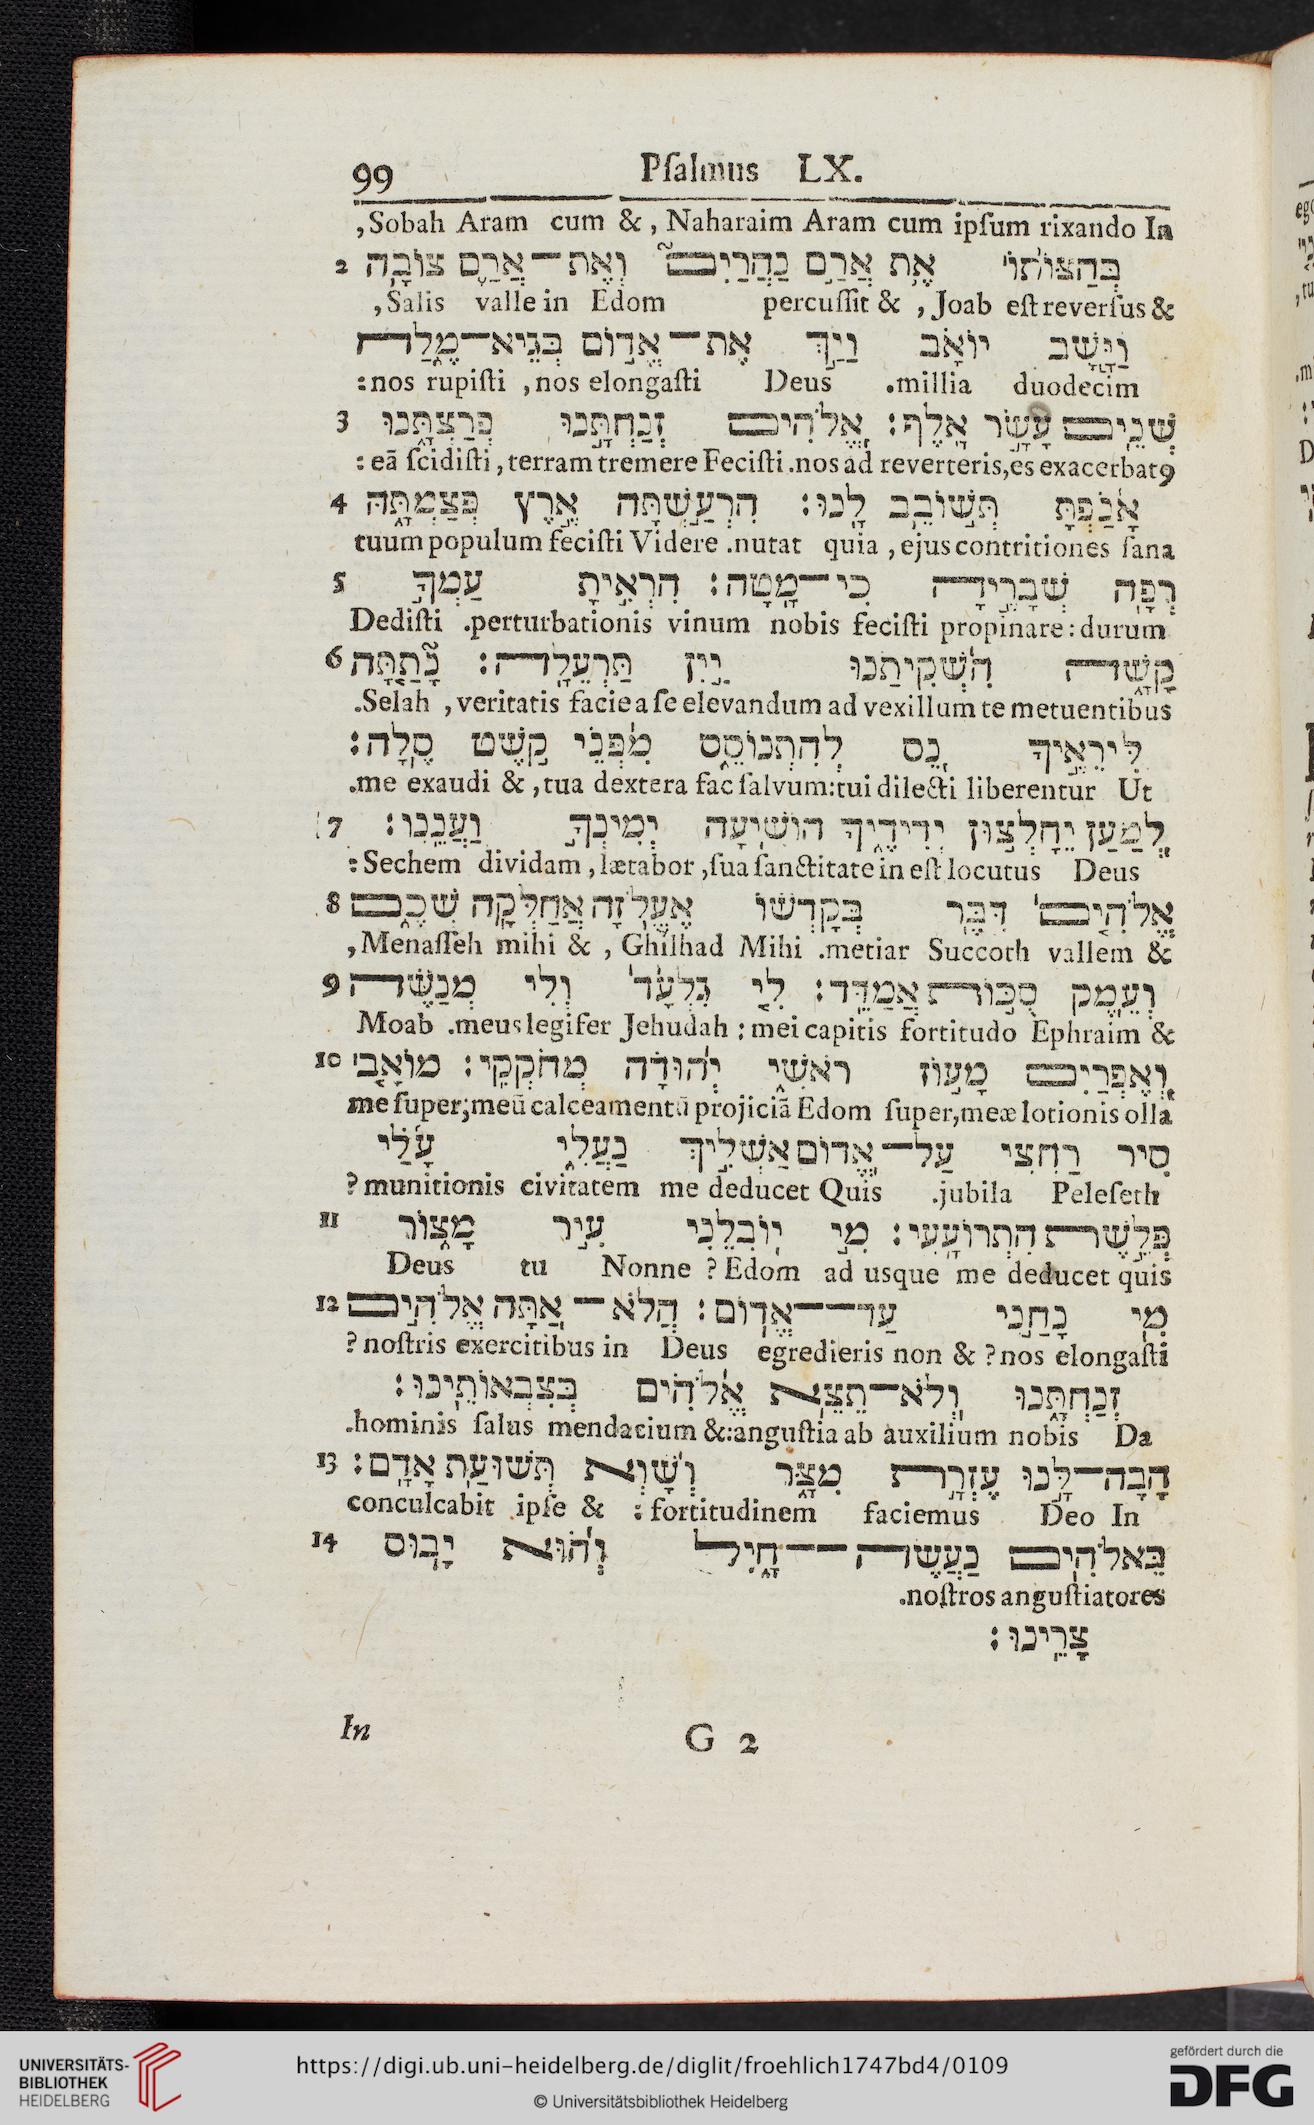 99 Pſalmus LX.
,Sobah Aram cum &, Naharaim Aram cum ipſum rixando In
2 בְּהַצּוֹתוֹ אֶת אֲרַם נַהֲרַיִם וְאֶת־אֲרַם צוֹבָה
,Salis valle in Edom percuſſit & , Joab eſt reverſus &
וַיָּשָׁב יוֹאָב וַיַּךְ אֶת־אֱדוֹם בְּגֵיא־מֶלַח
:nos rupiſti ,nos elongaſti Deus .millia duodecim
3 שְׁנֵים עָשָׂר אָלֶף: אֱלֹהִים זְנַחְתָּנוּ פְרַצְתָּנוּ
: eã ſcidiſti, terram tremere Feciſti .nos ad reverteris, es exacerbatꝰ
4 אָנַפְתָּ תְּשׁוֹבֵב לָנוּ: הִרְעַשְׁתָּה אֶרֶץ פְּצַמְתָּהּ
tuum populum feciſti Videre .nutat quia , ejus contritiones ſana
5 רְפָה שְׁבָרֶיהָ כִי־מָטָה: הִרְאִיתָ עַמְּךָ
Dediſti .perturbationis vinum nobis feciſti propinare: durum
6 קָשָׁה הִשְׁקִיתַנוּ יַיִן תַּרְעֵלָה: נָתַתָּה
.Selah , veritatis facie a ſe elevandum ad vexillum te metuentibus
לִּירֵאֶיךָ נֵּס לְהִתְנוֹסֵס מִפְּנֵי קֹשֶׁט סֶלָה:
.me exaudi & , tua dextera fac ſalvum: tui dilecti liberentur Ut
7 לְמַעַן יֵחָלְצוּן יְדִידֶיךָ הוֹשִׁיעָה יְמִינְךָ וַעֲנֵנוּ:
: Sechem dividam, lætabor, ſua ſanctitate in eſt locutus Deus
8 אֱלֹהִים דִּבֶּר בְּקָדְשׁוֹ אֶעֱלֹזָה אֲחַלְּקָה שְׁכֶם
,Menaſſeh mihi & , Ghilhad Mihi .metiar Succoth vallem &
9 וְעֵמֶק סֻכּוֹת אֲמַדֵּד: לִי גִלְעָד וְלִי מְנַשֶּׁה
Moab .meus legifer Jehudah ; mei capitis fortitudo Ephraim &
10 וְאֶפְרַיִם מָעוֹז רֹאשִׁי יְהוּדָה מְחֹקְקִי: מוֹאָב
me ſuper; meũ calceamentũ projiciã Edom ſuper, meæ lotionis olla
סִיר רַחְצִי עַל־אֱדוֹם אַשְׁלִיךְ נַעֲלִי עָלַי
? munitionis civitatem me deducet Quis .jubila Peleſeth
11 פְּלֶשֶׁת הִתְרוֹעָעִי: מִי יוֹבִלֵנִי עִיר מָצוֹר
Deus tu Nonne ? Edom ad usque me deducet quis
12 מִי נָחַנִי עַד־אֱדוֹם: הֲלֹא־אַתָּה אֱלֹהִים
? noſtris exercitibus in Deus egredieris non & ? nos elongaſti
זְנַחְתָּנוּ וְלֹא־תֵצֵא אֱלֹהִים בְּצִבְאוֹתֵינוּ:
.hominis ſalus mendacium &: anguſtia ab auxilium nobis Da
13 הָבָה־לָּנוּ עֶזְרָת מִצָּר וְשָׁוְא תְּשׁוּעַת אָדָם:
conculcabit ipſe & : fortitudinem faciemus Deo In
14 בֵּאלֹהִים נַעֲשֶׂה־חָיִל וְהוּא יָבוּס
.noſtros anguſtiatores
צָרֵינוּ:
In G 2
UNIVERSITÄTS-
BIBLIOTHEK
HEIDELBERG
https://digi.ub.uni-heidelberg.de/diglit/froehlich1747bd4/0109
© Universitätsbibliothek Heidelberg
gefördert durch die
DFG